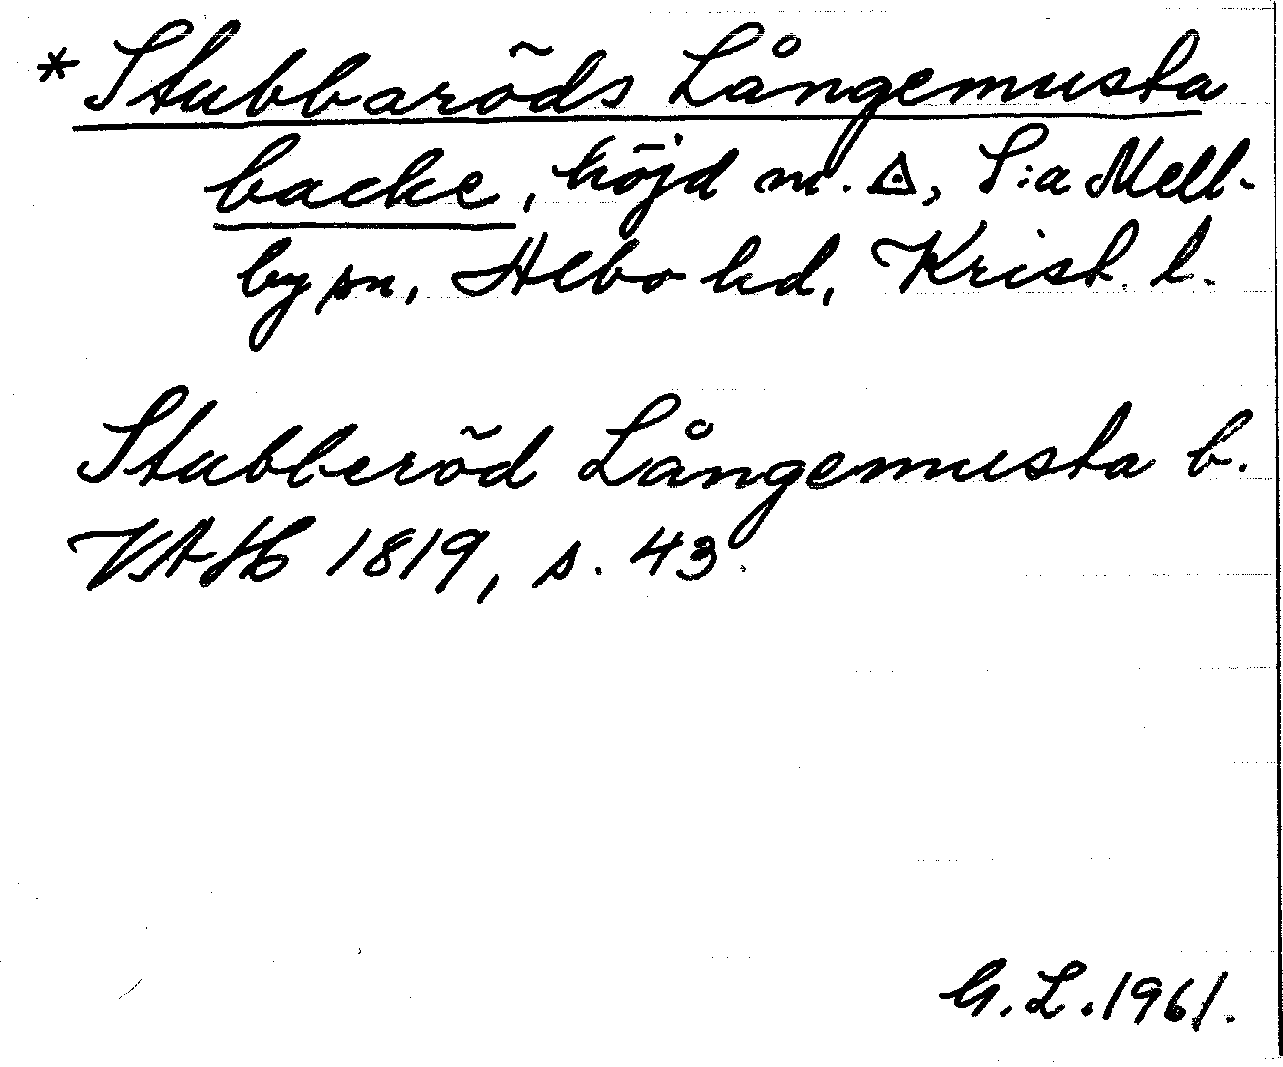 * Stubbaröds Långemusta
backe, höjd m. ◬, S:a Mell-
by sn, Albo hd, Krist. l.
Stubberöd Långemusta b.
VAH 1819, s. 43.
G. L. 1961.